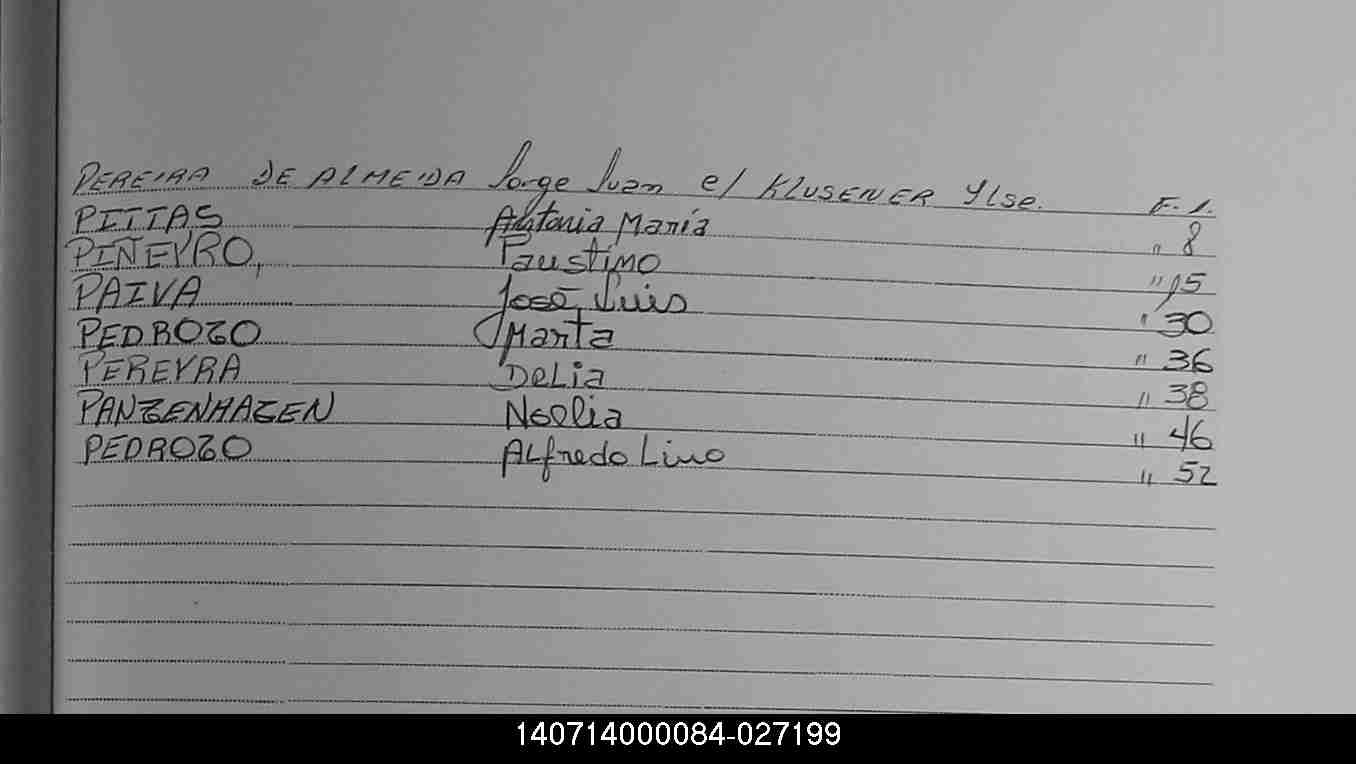 PEREIRA DE ALMEIDA Jorge Juan c/ KLUSENER Ylse. F. 1.
PITTAS Antonia María " 8
PIÑEYRO, Faustino " 15
PAIVA José Luis " 30
PEDROZO Marta " 36
PEREYRA Delia " 38
PANZENHAGEN Noelia " 46
PEDROZO Alfredo Lino " 52
140714000084-027199